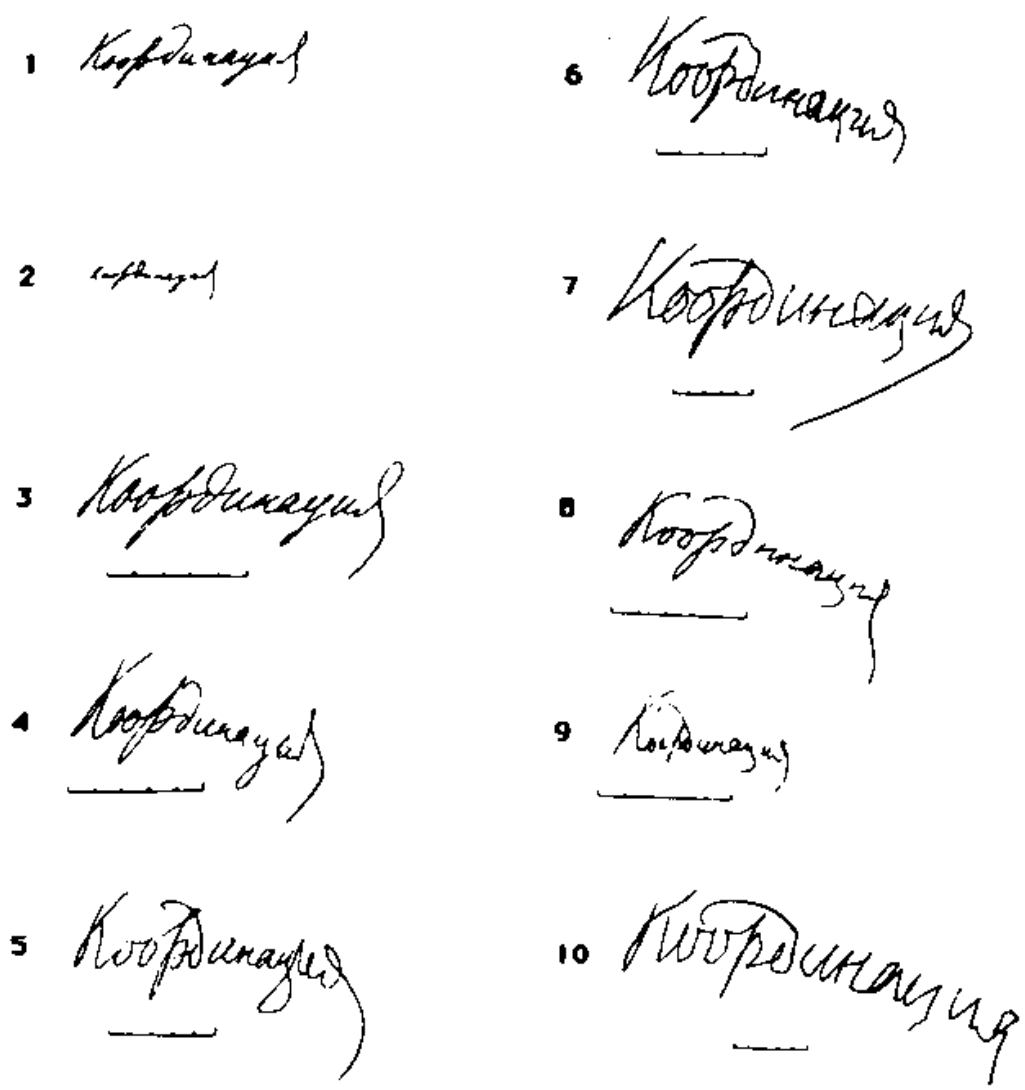 1 Координация
2 координация
3 Координация
4 Координация
5 Координация
6 Координация
7 Координация
8 Координация
9 Координация
10 Координация